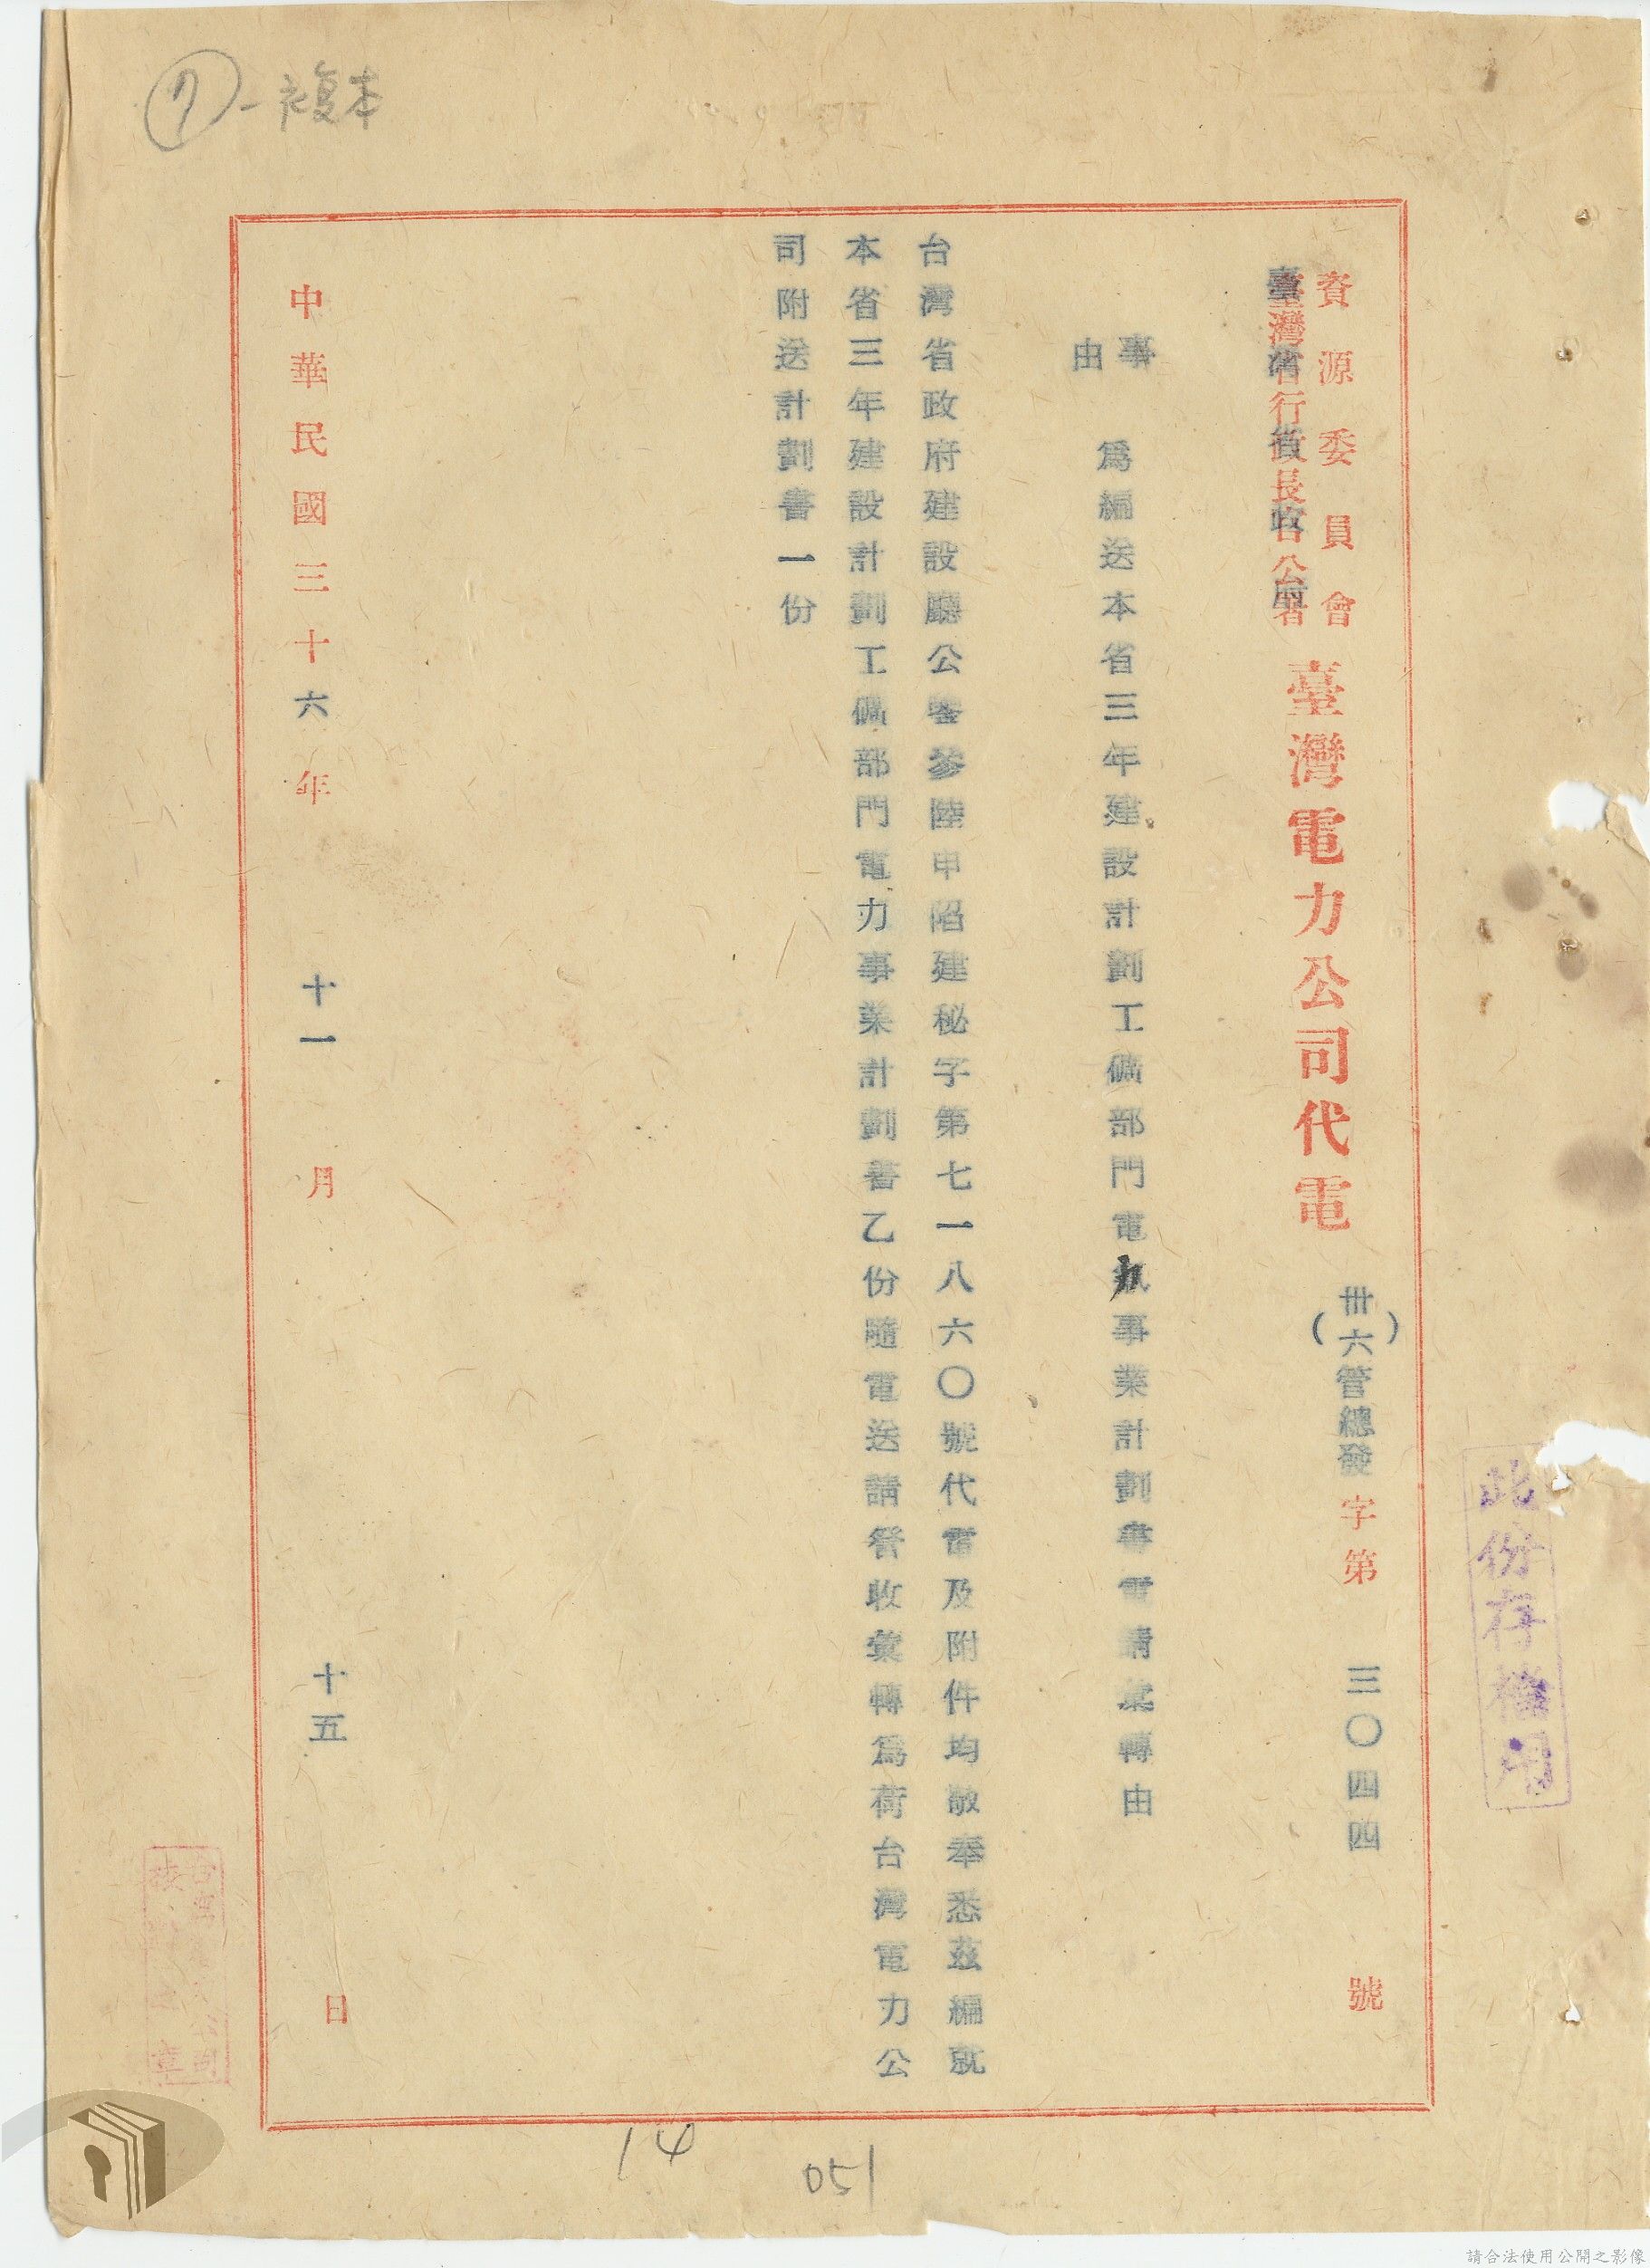 ⑺-複本
資源委員會
臺灣省行政長官公署
臺灣省政府
臺灣電力公司代電
(卅六)管總發字第三〇四四號
此份存檔用
事由
為編送本省三年建設計劃工礦部門電力事業計劃書電請彙轉由
台灣省政府建設廳公鑒參陸申陷建秘字第七一八六〇號代電及附件均敬奉悉茲編就
本省三年建設計劃工礦部門電力事業計劃書乙份隨電送請詧收彙轉為荷台灣電力公
司附送計劃書一份
中華民國三十六年十一月十五日
14
051
請合法使用公開之影像